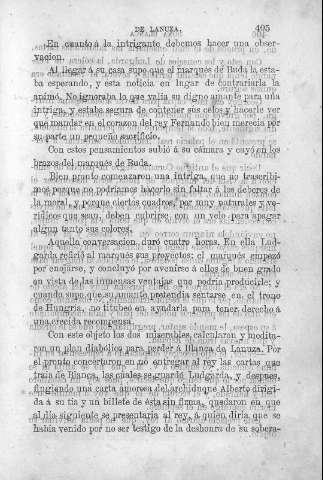 DE LANUZA. 405
En cuanto á la intrigante debemos hacer una obser-
vacion.
Al llegar á su casa supo que el marqués de Buda la esta-
ba esperando, y esta noticia en lugar de contrariarla la
animó. No ignoraba lo que valia su digno amante para una
intriga, y estaba segura de contener sus celos y hacerle ver
que mandar en el corazon del rey Fernando bien merecia por
su parte un pequeño sacrificio.
Con estos pensamientos subió á su cámara y cayó en los
brazos del marqués de Buda.
Bien pronto comenzaron una intriga, que no trascribi-
mos porque no podriamos hacerlo sin faltar á los deberes de
la moral, y porque ciertos cuadros, por muy naturales y ve-
rídicos que sean, deben cubrirse con un velo para apagar
algun tanto sus colores.
Aquella conversacion duró cuatro horas. En ella Lud-
garda refirió al marqués sus proyectos; el marqués empezó
por enojarse, y concluyó por avenirse á ellos de buen grado
en vista de las inmensas ventajas que podria producirle; y
cuando supo que su amante pretendia sentarse en el trono
de Hungría, no titubeó en ayudarla para tener derecho á
una crecida recompensa.
Con este objeto los dos miserables calcularon y medita-
ron un plan diabólico para perder á Blanca de Lanuza. Por
el pronto concertaron en no entregar al rey las cartas que
traia de Blanca, las cuales se guardó Ludgarda, y despues,
fingiendo una carta amorosa del archiduque Alberto dirigi-
da á su tia y un billete de ésta sin firma, quedaron en que
al dia siguiente se presentaria al rey, á quien diria que se
habia venido por no ser testigo de la deshonra de su sobera-